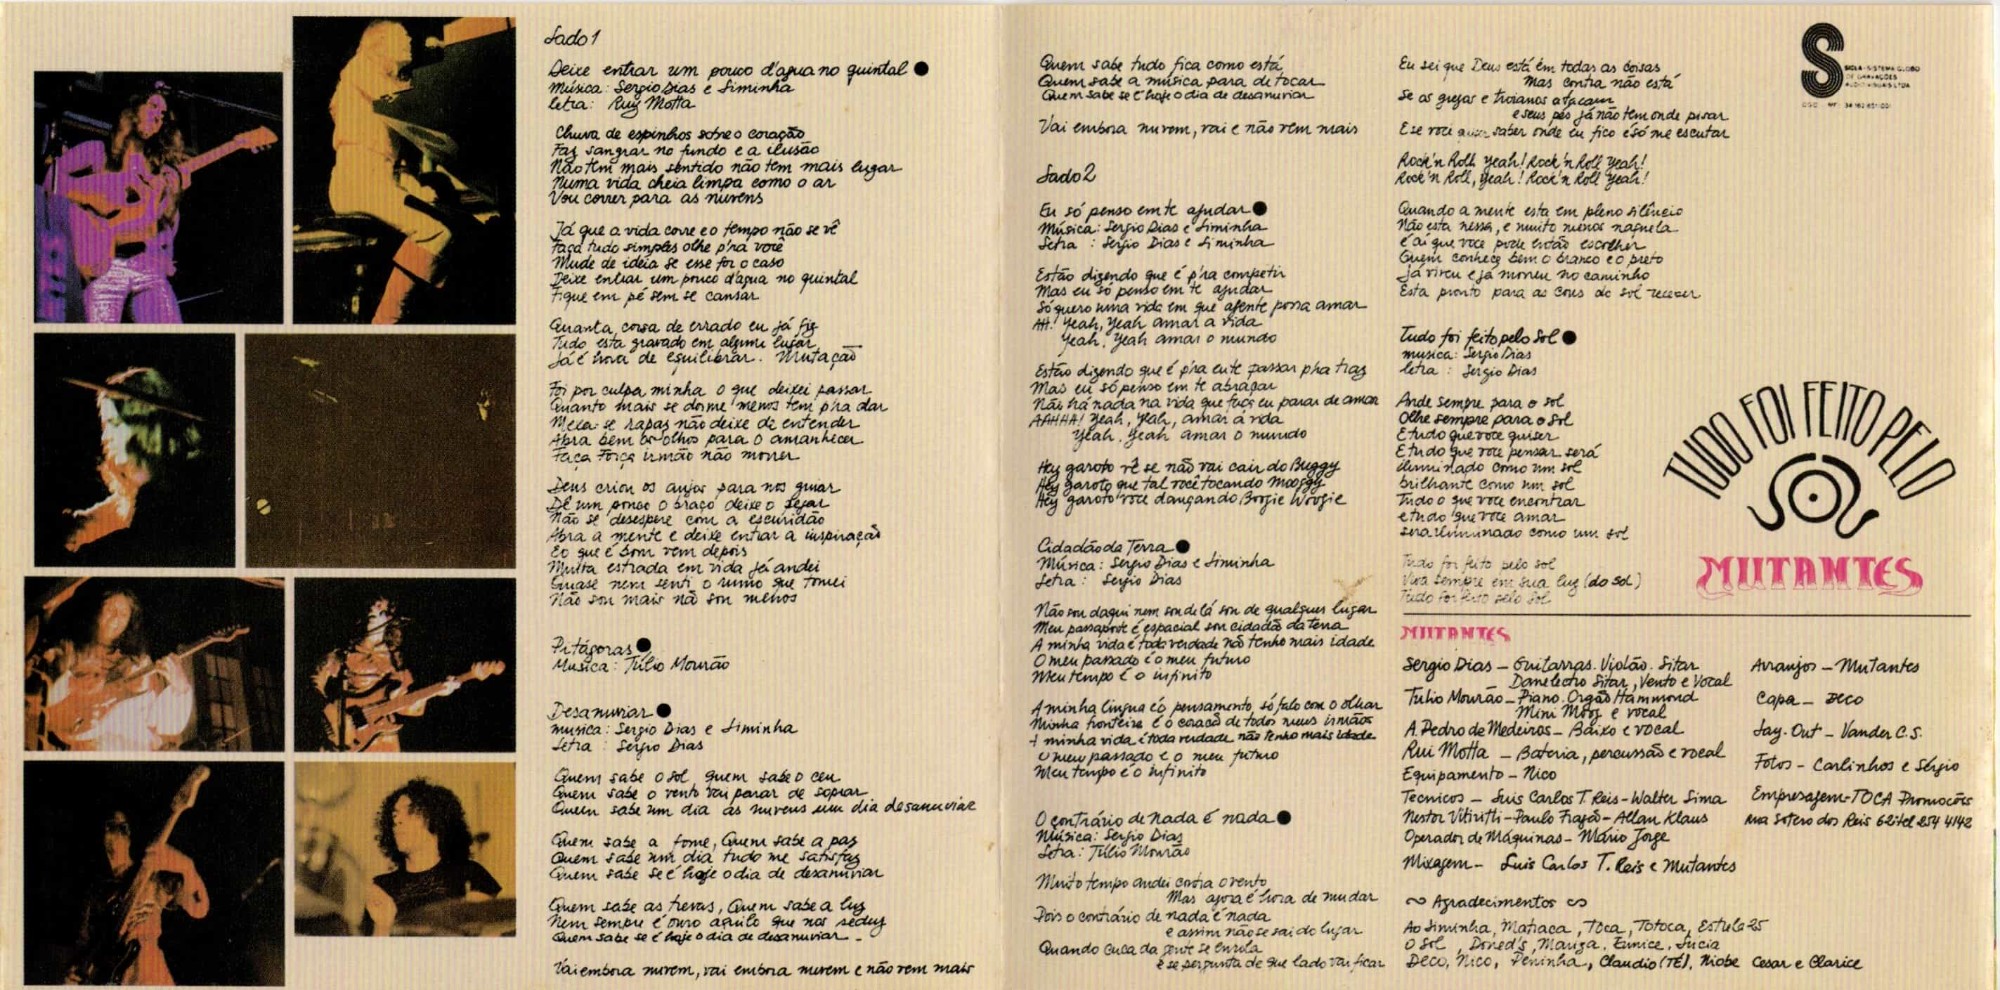 Lado 1
Deixe entrar um pouco d'agua no quintal
Música: Sergio Dias e Liminha
letra: Ruy Motta
Chuva de espinhos sobre o coração
Faz sangrar no fundo e a ilusão
Não tem mais sentido não tem mais lugar
Numa vida cheia limpa como o ar
Vou correr para as nuvens
Já que a vida corre e o tempo não se vê
Faça tudo simples olhe p'ra você
Mude de ideia se esse for o caso
Deixe entrar um pouco d'agua no quintal
Fique em pé sem se cansar
Quanta coisa de errado eu já fiz
Tudo esta gravado em algum lugar
Já é hora de equilibrar. Mutação
Foi por culpa minha o que deixei passar
Quanto mais se dorme menos tem p'ra dar
Mexa-se rapaz não deixe de entender
Abra bem os olhos para o amanhecer
Faça força irmão não morrer
Deus criou os anjos para nos guiar
Dê um pouco o braço deixe o
Não se desespere com a escuridão
Abra a mente e deixe entrar a inspiração
E o que é bom vem depois
Muita estrada em vida já andei
Quase nem senti o rumo que tomei
Não sou mais nã sou menos
Pitágoras
Musica: Túlio Mourão
Desanuviar
musica: Sergio Dias e Liminha
Letra: Sergio Dias
Quem sabe o sol, quem sabe o ceu
Quem sabe o vento vai parar de soprar
Quem sabe um dia as nuvens um dia desanuviar
Quem sabe a fome, Quem sabe a paz
Quem sabe um dia tudo me satisfaz
Quem sabe se é hoje o dia de desanuviar
Quem sabe as trevas, Quem sabe a luz
Nem sempre é ouro aquilo que nos seduz
Quem sabe se é hoje o dia de desanuviar
Vai embora nuvem, vai embora nuvem e não vem mais
Quem sabe tudo fica como está
Quem sabe a música para de tocar
Quem sabe se é hoje o dia de desanuviar
Vai embora nuvem, vai e não vem mais
Lado 2
Eu só penso em te ajudar
Música: Sergio Dias e Liminha
Letra: Sergio Dias e Liminha
Estão dizendo que é p'ra competir
Mas eu só penso em te ajudar
Só quero uma vida em que agente possa amar
AH! Yeah, Yeah amar a vida
Yeah, Yeah amar o mundo
Estão dizendo que é p'ra eu te passar pra traz
Mas eu só penso em te abraçar
Não há nada na vida que faça eu parar de amar
AAHHA! Yeah, Yeah, amar a vida
Yeah, Yeah amar o mundo
Hey garoto vê se não vai cair do Buggy
Hey garoto que tal você tocando Mooggy
Hey garoto voce dançando Boogie Woogie
Cidadão da Terra
Música: Sergio Dias e Liminha
Letra: Sergio Dias
Não sou daqui nem sou de lá sou de qualquer lugar
Meu passaporte é espacial sou cidadã da terra
A minha vida é toda verdade não tenho mais idade
O meu passado é o meu futuro
Meu tempo é o infinito
A minha lingua é o pensamento, só falo com o olhar
Minha fronteira é o coraçã de todos meus irmãos
A minha vida é toda verdade não tenho mais idade
O meu passado é o meu futuro
Meu tempo é o infinito
O contrário de Nada é nada
Música: Sergio Dias
Letra: Túlio Mourão
Muito tempo andei contra o vento
Mas agora é hora de mudar
Pois o contrário de nada é nada
e assim não se sai do lugar
Quando cuca da gente se enrola
e se pergunta de que lado vai ficar
Eu sei que Deus está em todas as coisas
Mas contra não está
Se os gregos e troianos atacam
e seus pés já não tem onde pisar
E se você quiser saber onde eu fico é só me escutar
Rock'n Roll Yeah! Rock'n Roll Yeah!
Rock'n Roll, Yeah! Rock'n Roll Yeah!
Quando a mente esta em pleno silêncio
Não esta nessa, e muito menos naquela
é aí que voce pode então escolher
Quem conhece bem o branco e o preto
Já viveu e já morreu no caminho
Esta pronto para as cores do sol
Tudo foi feito pelo Sol
musica: Sergio Dias
letra: Sergio Dias
Ande sempre para o sol
Olhe sempre para o sol
E tudo que voce quiser
E tudo que voce pensar será
iluminado como um sol
brilhante como um sol
Tudo o que voce encontrar
e tudo que voce amar
sera iluminado como um sol
Tudo foi feito pelo sol
Viva sempre em sua luz (do sol)
Tudo foi feito pelo sol
SIGLA-SISTEMA GLOBO
DE GRAVAÇÕES
AUDIOVISUAIS LTDA
TUDO FOI FEITO PELO
SOL
MUTANTES
MUTANTES
Sergio Dias - Guitarras. Violão. Sitar
Danelectro Sitar, Vento e Vocal
Tulio Mourão - Piano. Orgão Hammond
Mini Moog e vocal
A. Pedro de Medeiros - Baixo e vocal
Rui Motta - Bateria, percussão e vocal
Equipamento - Nico
Tecnicos - Luis Carlos T. Reis - Walter Lima
Nestor Vitiritti - Paulo Frazão - Allan Klaus
Operador de Máquinas - Mário Jorge
Mixagem - Luis Carlos T. Reis e Mutantes
Arranjos - Mutantes
Capa - Deco
Lay-Out - Vander C.S.
Fotos - Carlinhos e Sérgio
Empresagem - TOCA Promoções
rua Sotero dos Reis 62 tel 254 4142
Agradecimentos
Ao Liminha, Matraca, Toca, Totoca, Estrela 25
O Sol, Doned's, Mariza, Eunice, Lucia
Deco, Nico, Peninha, Claudio (TÉ), Niobe Cesar e Clarice